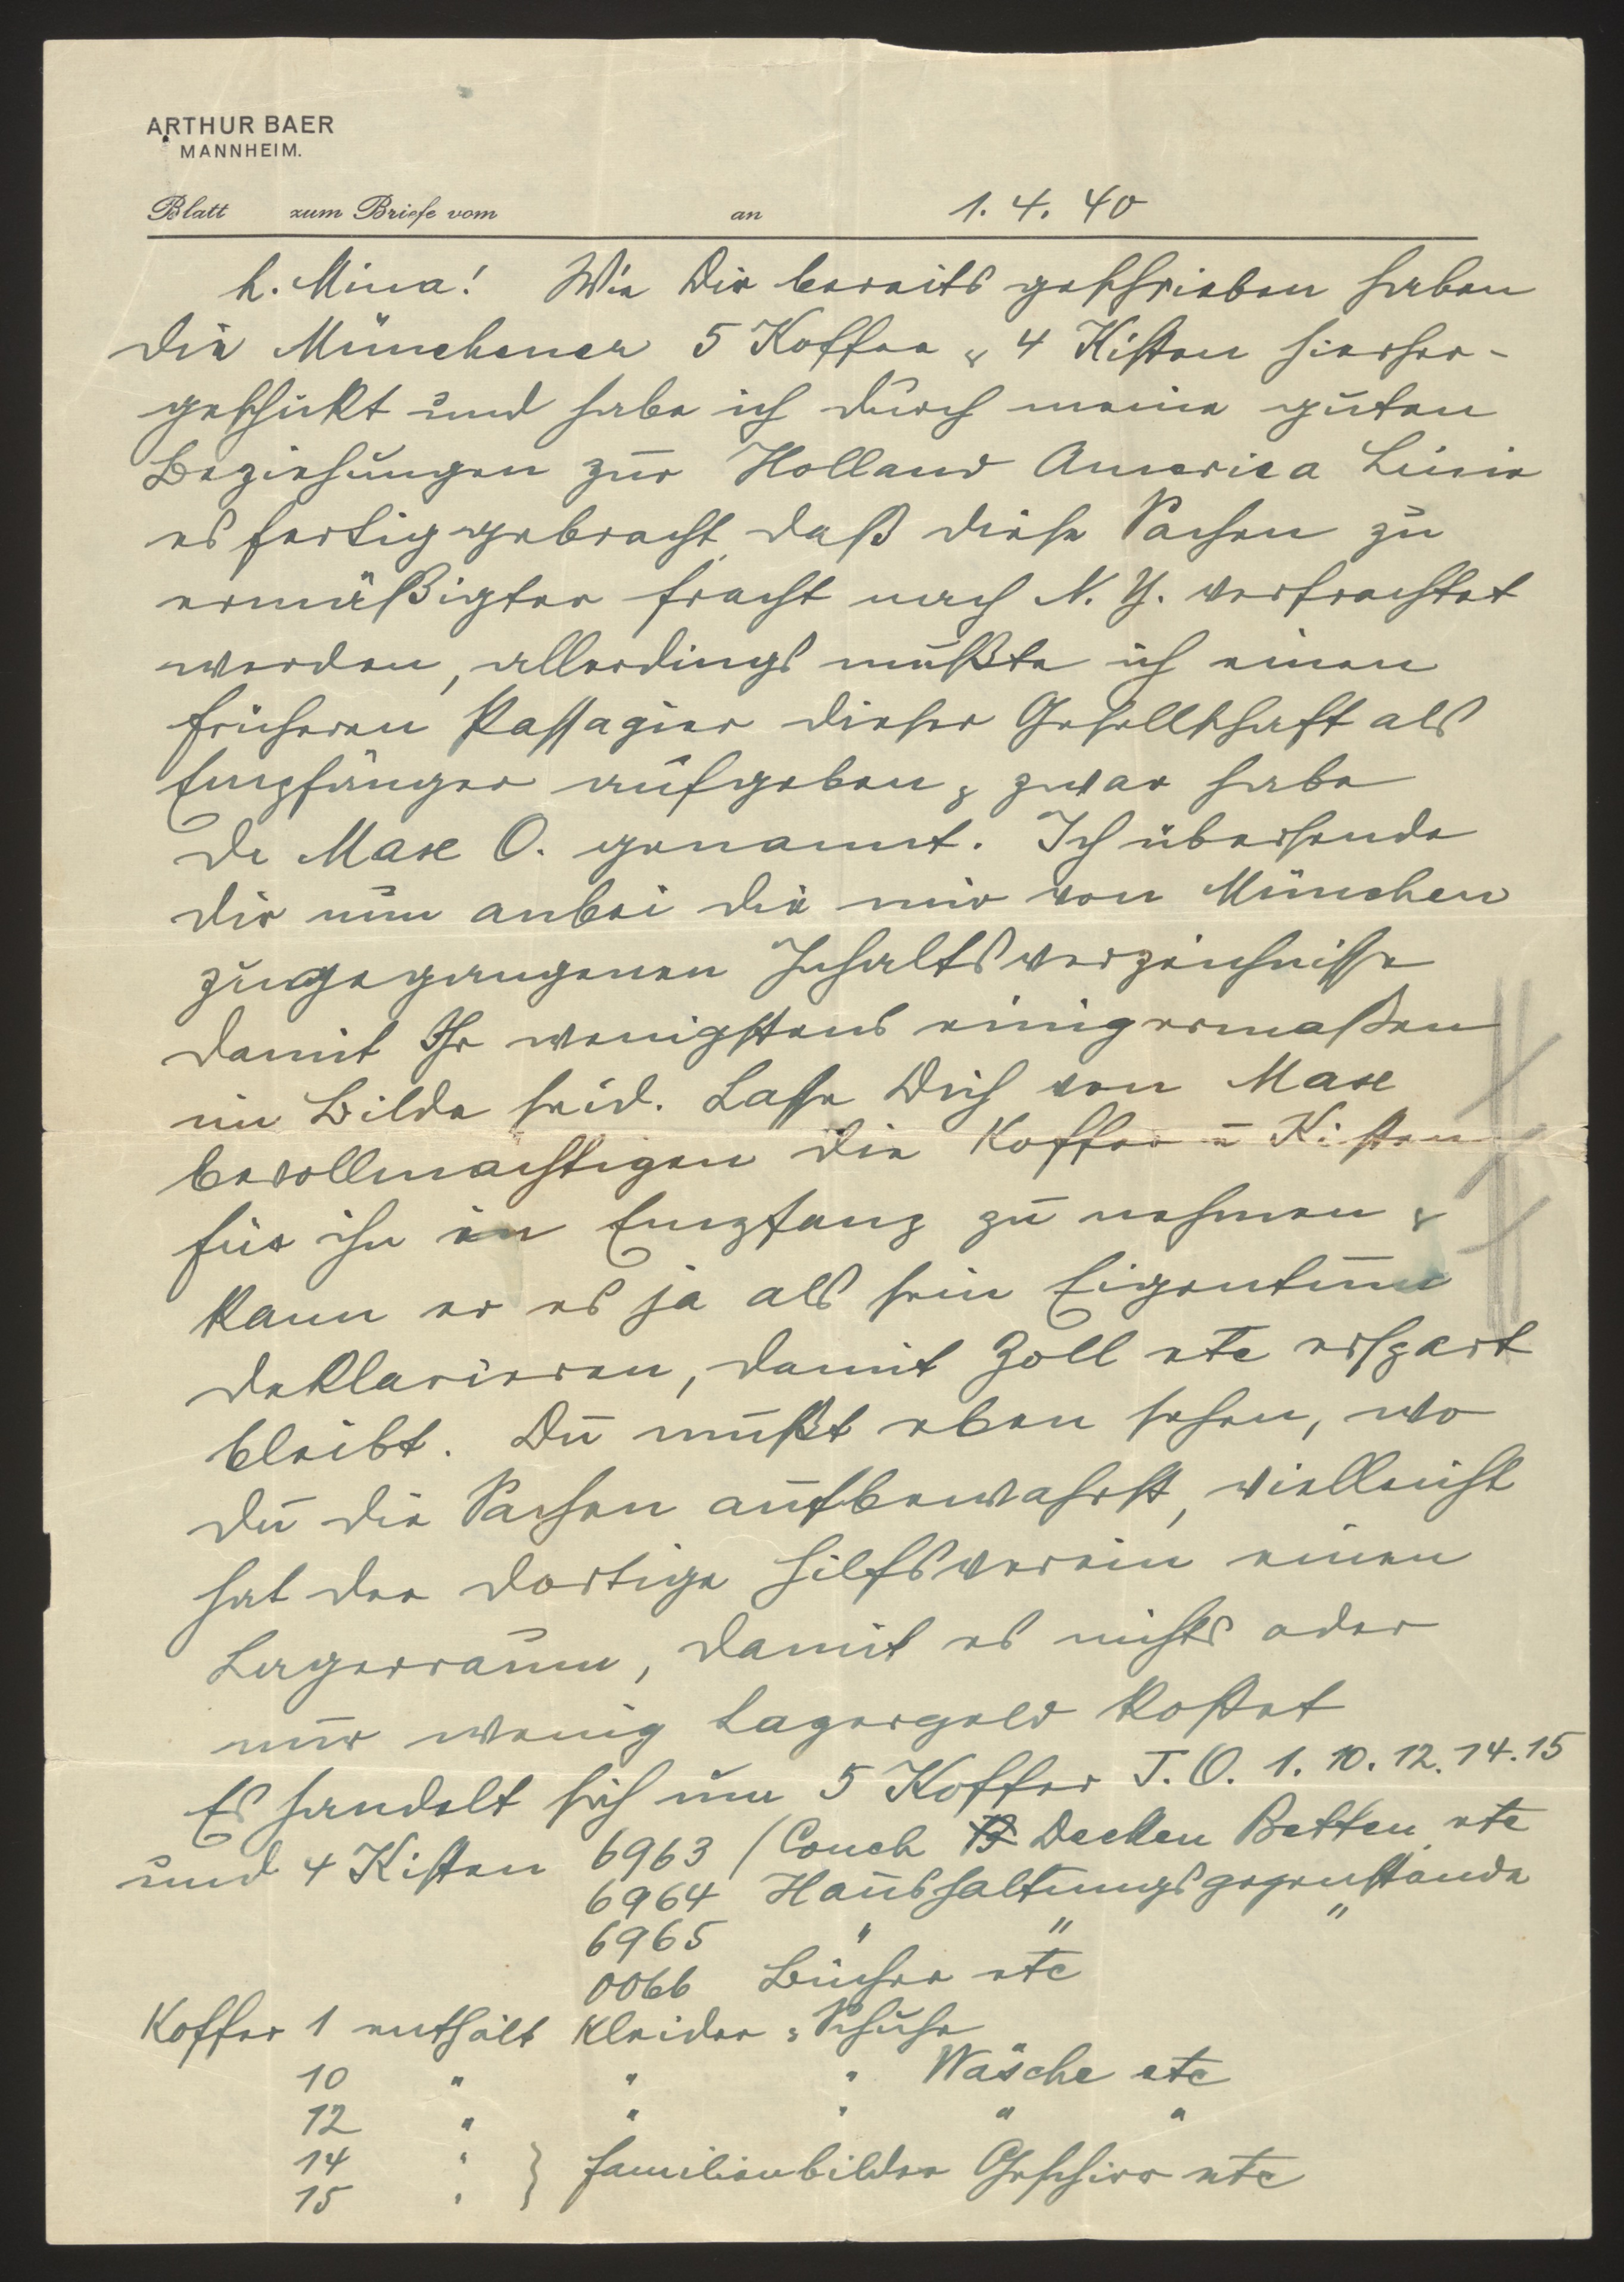 ARTHUR BAER
MANNHEIM.
Blatt zum Briefe vom an 1. 4. 40
L. Mina! Wie Dir bereits geschrieben haben
die Münchener 5 Koffer & 4 Kisten hierher-
geschickt und habe ich durch meine guten
Beziehungen zur Holland America Linie
es fertig gebracht, daß diese Sachen zu
ermäßigter Fracht nach N. Y. verfrachtet
werden, allerdings mußte ich einen
früheren Passagier dieser Gesellschaft als
Empfänger aufgeben & zwar habe
Dr Max O. genannt. Ich übersende
Dir nun anbei die mir von München
zugegangenen Inhaltsverzeichnisse
damit Ihr wenigstens einigermaßen
im Bilde seid. Lasse Dich von Max
bevollmachtigen die Koffer u Kisten
für ihn in Empfang zu nehmen &
kann er es ja als sein Eigentum
deklarieren, damit Zoll etc erspart
bleibt. Du mußt eben sehen, wo
Du die Sachen aufbewahrst, vielleicht
hat der dortige Hilfsverein einen
Lagerraum, damit es nichts oder
nur wenig Lagergeld kostet
Es handelt sich um 5 Koffer J. O. 1. 10. 12. 14. 15
und 4 Kisten 6963 / Couch Decken Betten etc
6964 Haushaltungsgegenstände
6965 " " "
0066 Bücher etc
Koffer 1 enthält Kleider & Schuhe
10 " " " Wäsche etc
12 " " " " "
14 " } Familienbilder Geschirr etc
15 "